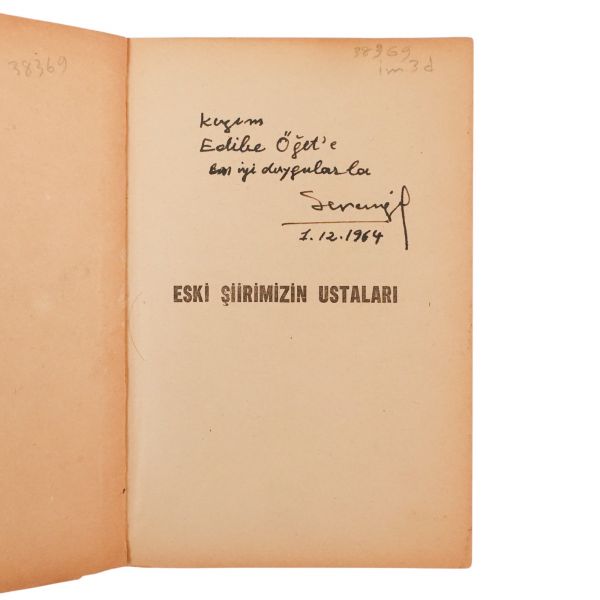 38369
38969
im3d
Kızım
Edibe Öğet'e
en iyi duygularla
Sevengil
1.12.1964
ESKİ ŞİİRİMİZİN USTALARI